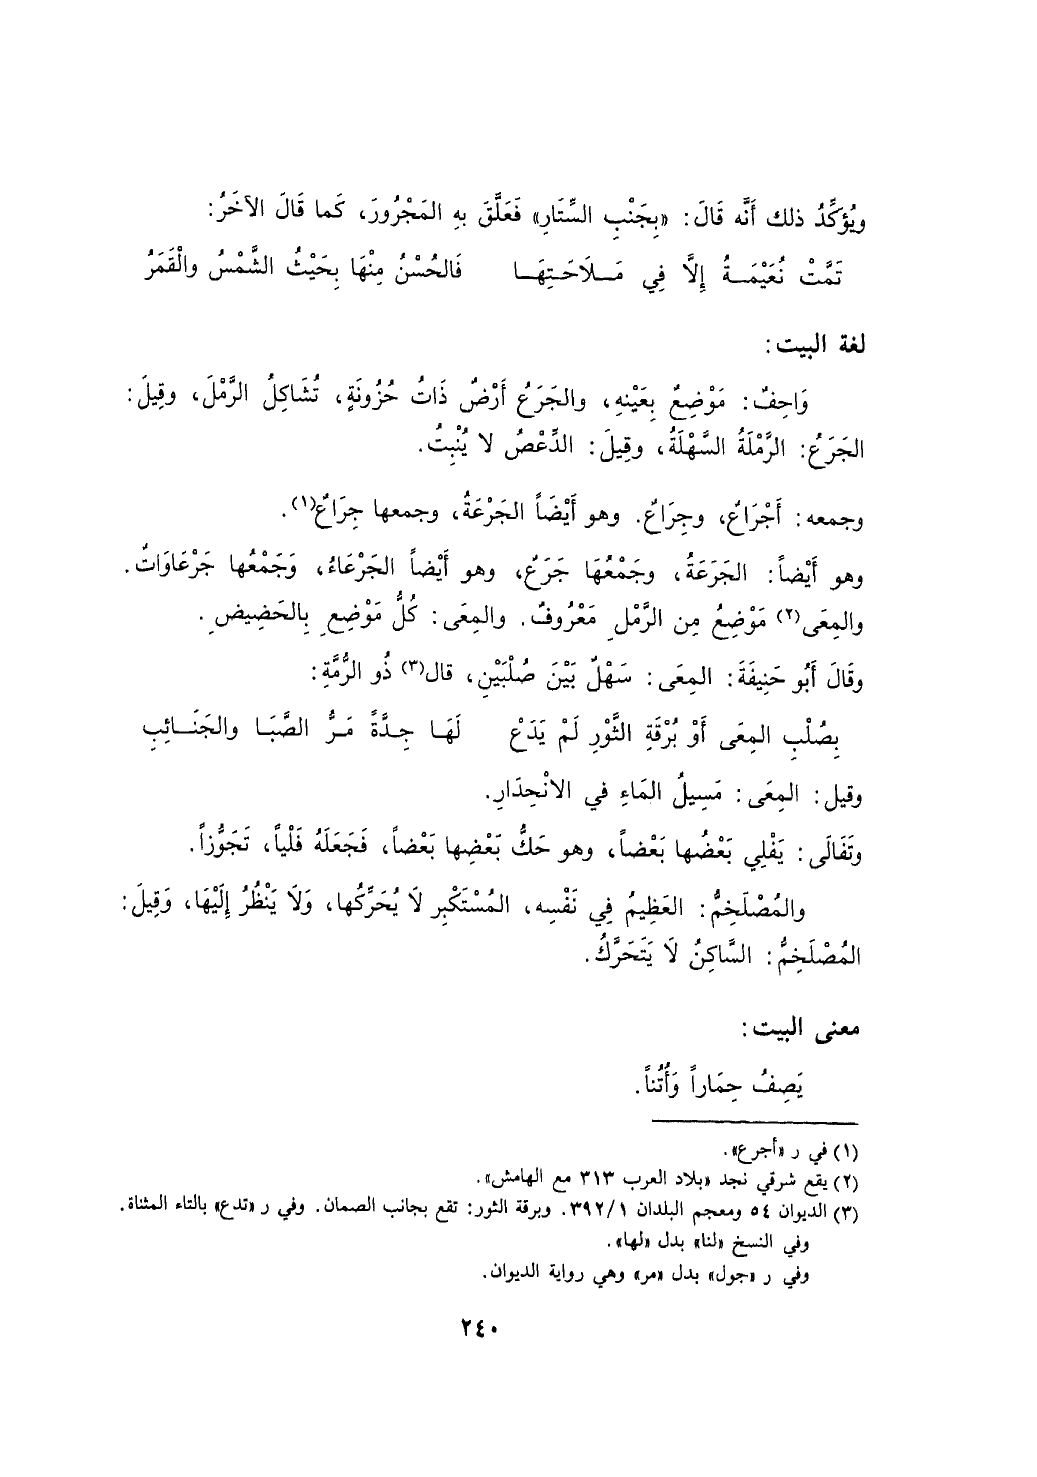 ويُؤكِّدُ ذلك أَنَّه قَالَ: «بِجَنْبِ السِّتَارِ» فَعَلَّقَ بِهِ المَجْرُورَ، كَما قَالَ الآخَرُ:
تَمَّتْ نُعَيْمَــةُ إِلاَّ فِي مَــلاَحَـتِهَــا فَالحُسْنُ مِنْهَا بِحَيْثُ الشَّمْسُ والْقَمَرُ
لغة البيت:
وَاحِفٌ: مَوْضِعٌ بِعَيْنِهِ، والجَرَعُ أَرْضٌ ذَاتُ حُزُونَةٍ، تُشَاكِلُ الرَّمْلَ، وقِيلَ:
الجَرَعُ: الرَّمْلَةُ السَّهْلَةُ، وقِيلَ: الدِّعْصُ لا يُنْبِتُ.
وجمعه: أَجْرَاعٌ، وجِرَاعٌ. وهو أَيْضَاً الجَرْعَةُ، وجمعها جِرَاعٌ(١).
وهو أَيْضاً: الجَرَعَةُ، وجَمْعُهَا جَرَعٌ، وهو أَيْضاً الجَرْعَاءُ، وَجَمْعُها جَرْعَاوَاتٌ.
والمِعَى(٢) مَوْضِعٌ مِن الرَّمْلِ مَعْرُوفٌ. والمِعَى: كُلُّ مَوْضِعٍ بِالحَضِيضِ.
وقَالَ أَبُو حَنِيفَةَ: المِعَى: سَهْلٌ بَيْنَ صُلْبَيْنِ، قال(٣) ذُو الرُّمَّةِ:
بِصُلْبِ المِعَى أَوْ بُرْقَةِ الثَّوْرِ لَمْ يَدَعْ لَهَـا جِـدَّةً مَـرُّ الصَّبَـا والجَنَــائِبِ
وقيل: المِعَى: مَسِيلُ المَاءِ في الانْحِدَارِ.
وتَفَالَى: يَفْلِي بَعْضُها بَعْضاً، وهو حَكُّ بَعْضِها بَعْضاً، فَجَعَلَهُ فَلْياً، تَجَوُّزاً.
والمُصْلَخِمُّ: العَظِيمُ فِي نَفْسِه، المُسْتَكْبِر لاَ يُحَرِّكُها، وَلاَ يَنْظُرُ إِلَيْهَا، وَقِيلَ:
المُصْلَخِمُّ: السَّاكِنُ لاَ يَتَحَرَّكُ.
معنى البيت:
يَصِفُ حِمَاراً وَأُتُناً.
(١) في ر «أجرع».
(٢) يقع شرقي نجد «بلاد العرب ٣١٣ مع الهامش».
(٣) الديوان ٥٤ ومعجم البلدان ٣٩٢/١. وبرقة الثور: تقع بجانب الصمان. وفي ر «تدع» بالتاء المثناة.
وفي النسخ «لنا» بدل «لها».
وفي ر «جول» بدل «مر» وهي رواية الديوان.
٢٤٠